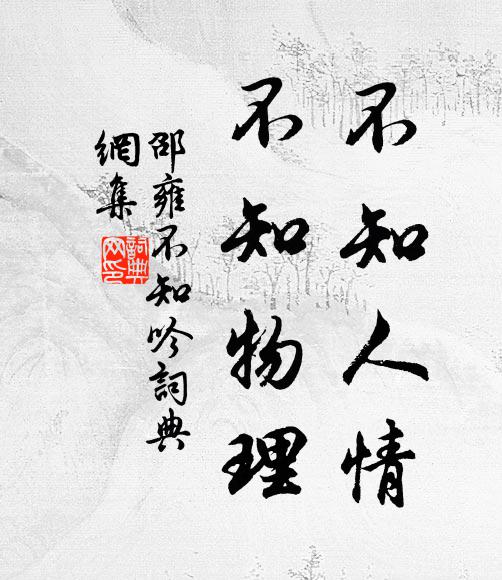 不知人情
不知物理
邵雍不知吟詞典
網集
詞典
网印